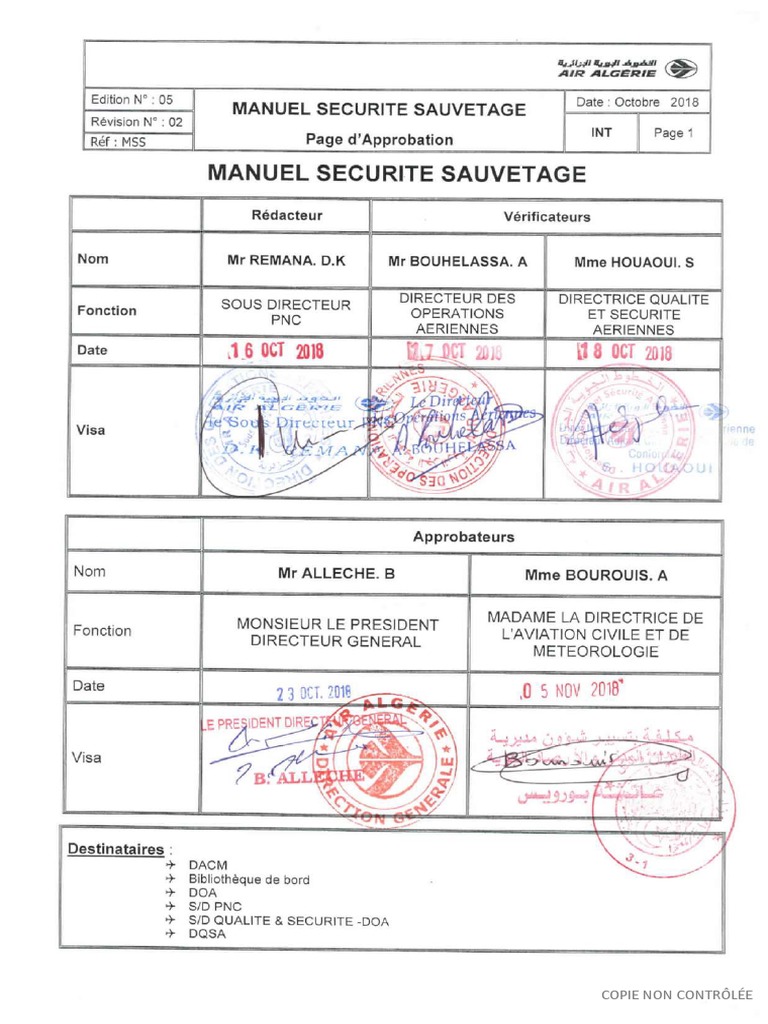 الخطوط الجوية الجزائرية
AIR ALGERIE
Edition N° : 05
Révision N° : 02
Réf : MSS
MANUEL SECURITE SAUVETAGE
Page d'Approbation
Date : Octobre 2018
INT
Page 1
MANUEL SECURITE SAUVETAGE
Rédacteur
Vérificateurs
Nom
Mr REMANA. D.K
Mr BOUHELASSA. A
Mme HOUAOUI. S
Fonction
SOUS DIRECTEUR
PNC
DIRECTEUR DES
OPERATIONS
AERIENNES
DIRECTRICE QUALITE
ET SECURITE
AERIENNES
Date
16 OCT 2018
17 OCT 2018
18 OCT 2018
Visa
AIR ALGERIE
le Sous Directeur PNC
D. K. REMANA
Le Directeur
Opérations Aériennes
A. BOUHELASSA
DIRECTION DES OPERATIONS AERIENNES
AIR ALGERIE
HOUAOUI
Approbateurs
Nom
Mr ALLECHE. B
Mme BOUROUIS. A
Fonction
MONSIEUR LE PRESIDENT
DIRECTEUR GENERAL
MADAME LA DIRECTRICE DE
L'AVIATION CIVILE ET DE
METEOROLOGIE
Date
23 OCT. 2018
05 NOV 2018
Visa
LE PRESIDENT DIRECTEUR GENERAL
B. ALLECHE
AIR ALGERIE
DIRECTION GENERALE
مكلفة بتسيير شؤون مديرية
بورويس
3-1
Destinataires :
DACM
Bibliothèque de bord
DOA
S/D PNC
S/D QUALITE & SECURITE -DOA
DQSA
COPIE NON CONTRÔLÉE